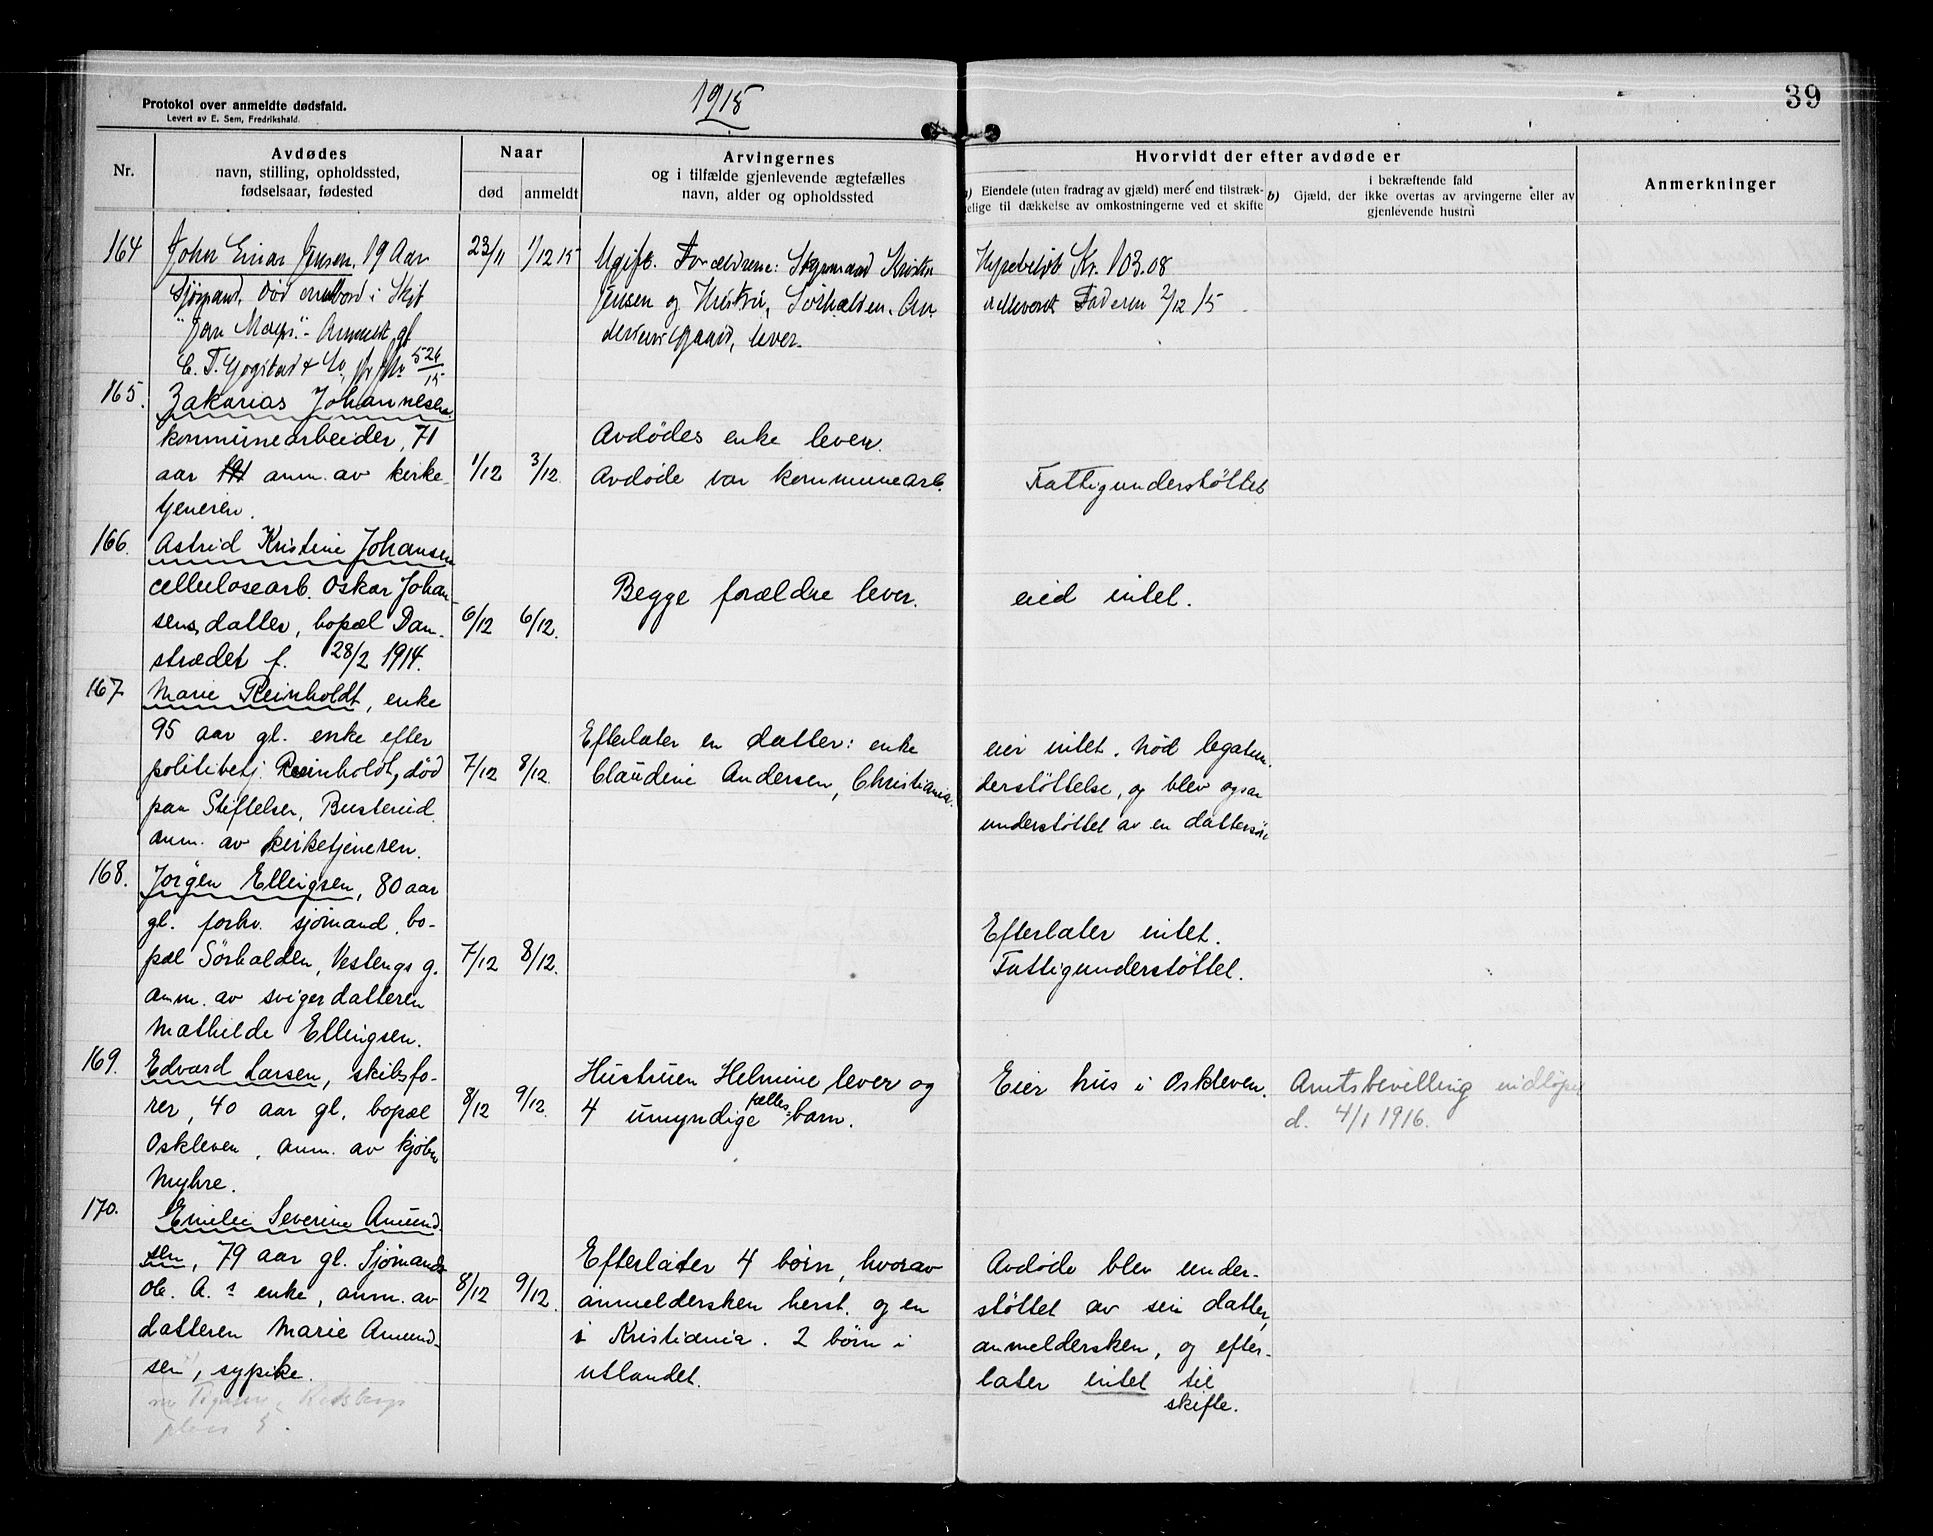 Protokol over anmeldte dødsfald.
Levert av E. Sem, Fredrikshald.
1915
39
Nr.
Avdødes
navn, stilling, opholdssted,
fødselsaar, fødested
Naar
død
anmeldt
Arvingernes
og i tilfælde gjenlevende ægtefælles
navn, alder og opholdssted
Hvorvidt der efter avdøde er
a) Eiendele (uten fradrag av gjæld) mere end tilstræk-
kelige til dækkelse av omkostningerne ved et skifte
i bekræftende fald
b) Gjæld, der ikke overtas av arvingerne eller av
gjenlevende hustru
Anmerkninger
164
John Einar Jensen, 19 Aar
Sjømand, død ombord i Skib
23/11
1/12 15
Ugift. Forældrene: Styrmand
Jensen og Hustru, Sørhalden, An-
dersensgaard, lever.
Hyrebeløb Kr. 103.08
utleveret Faderen 2/12 15
165.
Zakarias Johannesen
kommunearbeider, 71
aar anm. av kirke-
tjeneren.
1/12
3/12.
Avdødes enke lever.
Avdøde var kommunearb.
Fattigunderstøttet
166.
Astrid Kristine Johansen
cellulosearb. Oskar Johan-
sens datter, bopæl Dam-
strædet f. 28/2 1914.
6/12
6/12.
Begge forældre lever.
eied intet.
167
Marie Reinholdt, enke
95 aar gl. enke efter
politibetj. Reinholdt, død
paa Stiftelsen, Busterud
anm. av kirketjeneren.
7/12
8/12.
Efterlater en datter: enke
Claudine Andersen, Christiania.
eier intet. Nød legatun-
derstøttelse, og blev ogsaa
understøttet av en dattersøn
168.
Jørgen Ellingsen, 80 aar
gl. forhv. sjømand, bo-
pæl Sørhalden, Vestengs g.
anm. av svigerdatteren
Mathilde Ellingsen.
7/12
8/12.
Efterlater intet.
Fattigunderstøttet.
169.
Edvard Larsen, skibsfø-
rer, 40 aar gl. bopæl
Oskleven, anm. av kjøbm
Myhre.
8/12
9/12.
Hustruen Helmine lever og
4 umyndige fælles- barn.
Eier hus i Oskleven.
Amtsbevilling
d. 4/1 1916.
170.
Emilie Severine Amund-
sen, 79 aar gl. Sjømands
Ole. A.s enke, anm. av
datteren Marie Amund-
sen, sypike.
8/12
9/12.
Efterlater 4 børn, hvorav
anmeldersken herst. og en
i Kristiania. 2 børn i
utlandet.
Avdøde blev under-
støttet av sin datter,
anmeldersken, og efter-
later intet til
skifte.